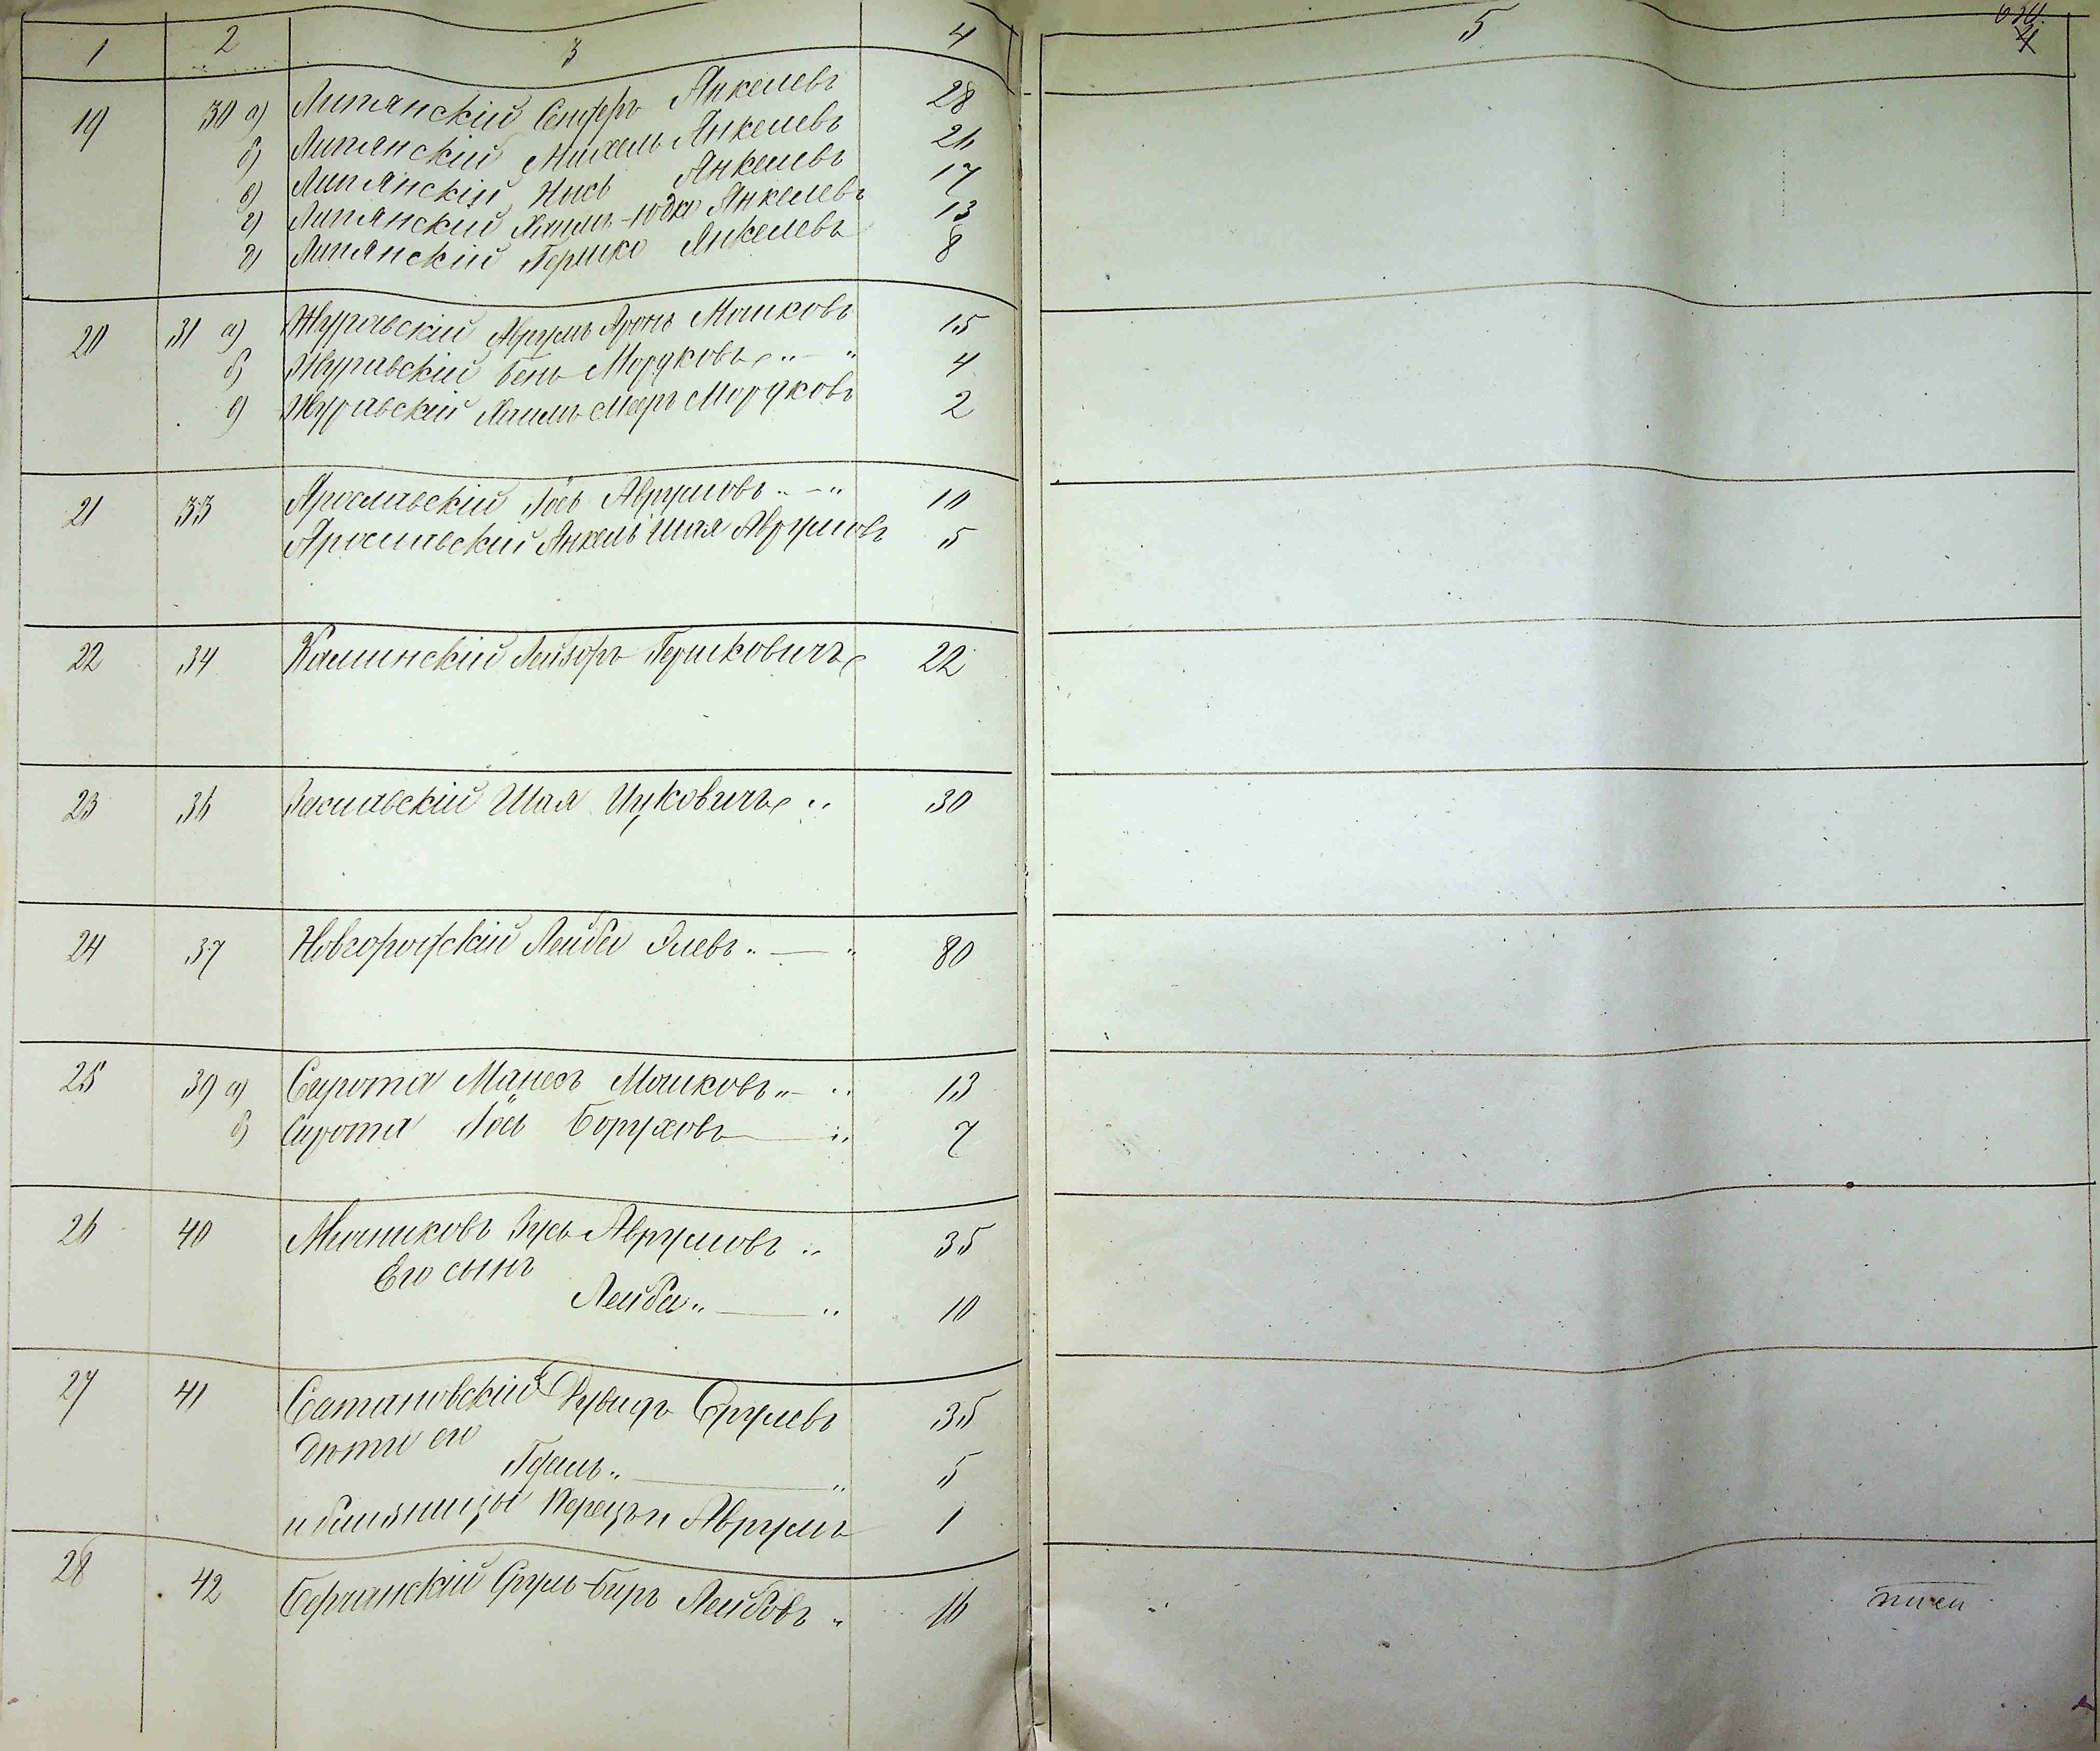 1 2 3 4 5
19 30 а) Липянскій Сендеръ Янкелевъ 28
б) Липянскій Михель Янкелевъ 26
в) Липянскій Иось Янкелевъ 17
г) Липянскій Хаимъ-Юдко Янкелевъ 13
д) Липянскій Гершко Янкелевъ 8
20 31 а) Журавскій Аврумъ Аронъ Мошковъ 15
б) Журавскій Бень Мордковъ „ — „ 4
в) Журавскій Хаимъ Мееръ Мордковъ 2
21 33 Ярославскій Іось Аврумовъ „ — „ 10
Ярославскій Янкель Шая Аврумовъ 5
22 34 Калинскій Лейзоръ Гершковичъ 22
23 36 Заславскій Шая Ицковичъ „ 30
24 37 Новгородскій Лейба Элевъ „ — „ 80
25 39 а) Сирота Манесъ Мошковъ „ — „ 13
б) Сирота Іось Боруховъ — „ 7
26 40 Мичниковъ Зусь Аврумовъ „ 35
Его сынъ
Лейба „ — „ 10
27 41 Сатановскій Дувидъ Срулевъ 35
Дѣти его
Гдаль „ — „ 5
и близницы Перецъ и Аврумъ 1
28 42 Бершинскій Сруль-Беръ Лейбовъ „ 16